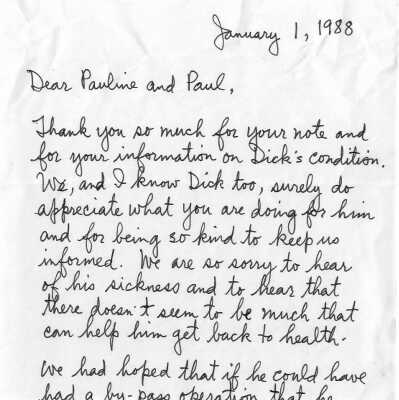 January 1, 1988
Dear Pauline and Paul,
Thank you so much for your note and
for your information on Dick's condition.
We, and I know Dick too, surely do
appreciate what you are doing for him
and for being so kind to keep us
informed. We are so sorry to hear
of his sickness and to hear that
there doesn't seem to be much that
can help him get back to health.
We had hoped that if he could have
had a by-pass operation that he